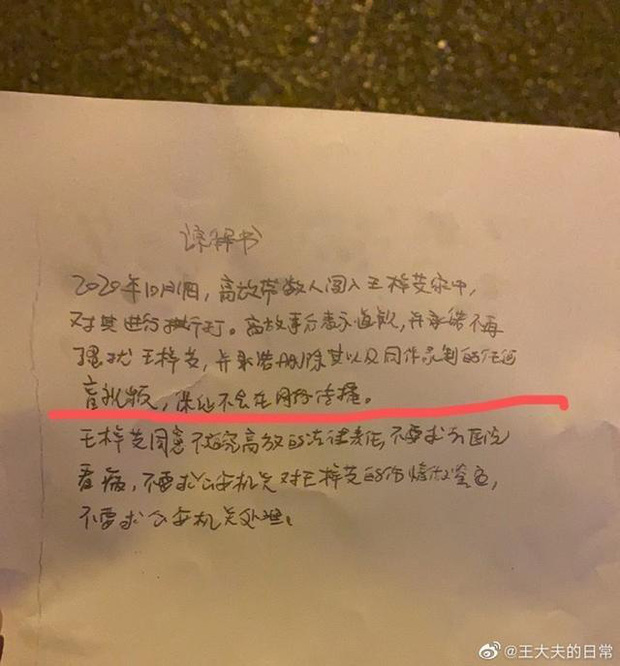 谅解书
2020年10月1日，高放带数人闯入王梓芠家中，
对其进行拼行打。高放事后表示道歉，并承诺不再
骚扰王梓芠，并承诺删除其以及同伴录制的任何
音视频，保证不会在网络传播。
王梓芠同意不追究高放的法律责任，不要求去医院
看病，不要求公安机关对王梓芠的伤情做鉴定，
不要求公安机关处理。
@王大夫的日常